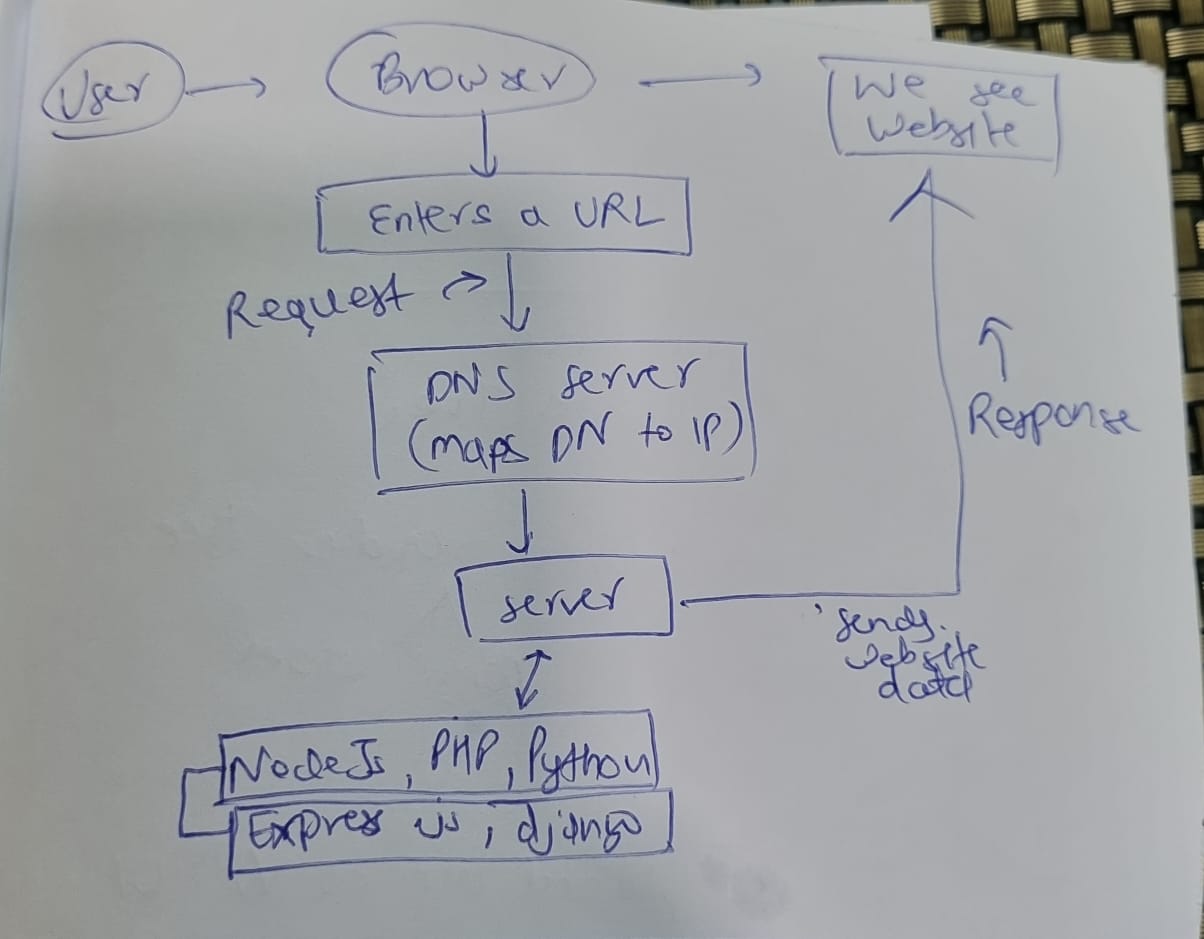 User
Browser
We see
Website
Enters a URL
Request
DNS server
(maps DN to IP)
Response
server
sends
website
data
NodeJs, PHP, Python
Express JS, django